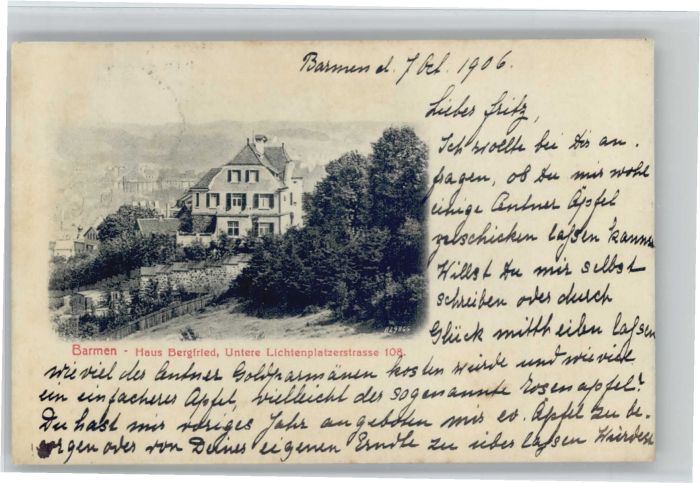 Barmen d. 7 Oct. 1906.
Lieber Fritz,
Ich wollte bei Dir an-
fragen, ob Du mir wohl
einige Centner Äpfel
zuschicken laßen kannst
Willst Du mir selbst
schreiben oder durch
Glück mittheilen laßen
A29866
Barmen - Haus Bergfried, Untere Lichtenplatzerstrasse 108.
wie viel der Centner Goldparmänen kosten würde und wie viel
ein einfacherer Apfel, vielleicht der sogenannte Rosenapfel?
Du hast mir voriges Jahr angeboten mir ev. Äpfel zu be-
sorgen oder von Deiner eigenen Erndte zu überlaßen Würdest